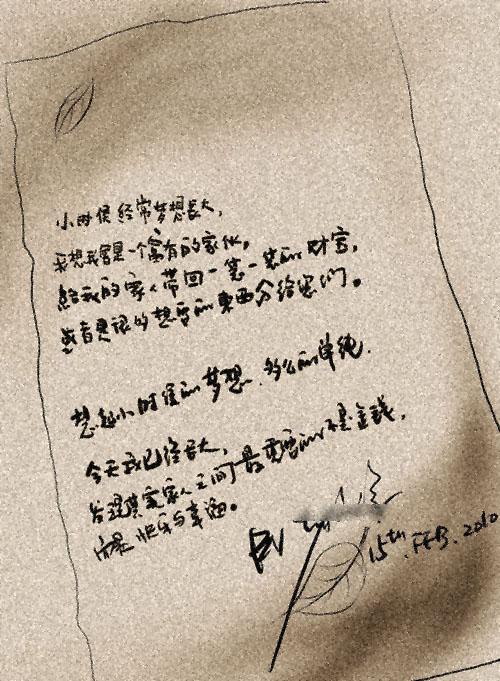 小时候经常梦想长大，
我想我会是一个富有的家伙。
给我的家人带回一笔一笔的财富，
或者更很多想要的东西分给他们。
想起小时候的梦想，多么的单纯．
今天我已经长大，
发现其实家人之间最重要的不是金钱，
而是快乐与幸福。
BY
15th. FEB. 2010